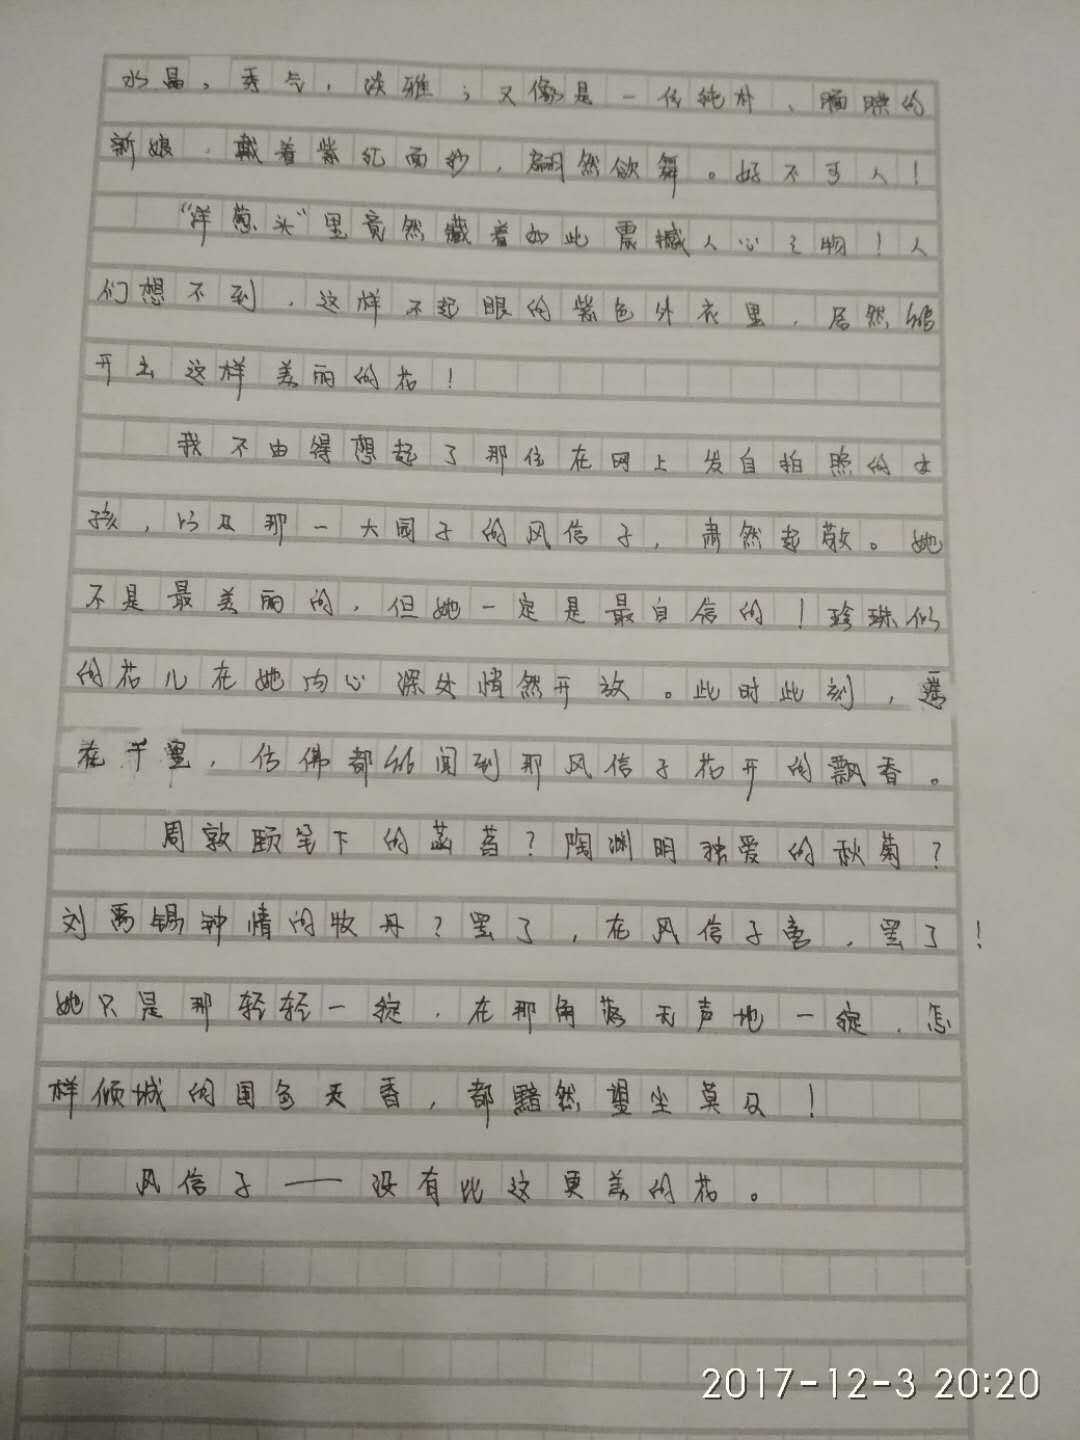 水晶，秀气，淡雅；又像是一位纯朴、腼腆的
新娘，戴着紫纪面纱，翩然欲舞。好不可人！
“洋葱头”里竟然藏着如此震撼人心之物！人
们想不到，这样不起眼的紫色外衣里，居然能
开出这样美丽的花！
我不由得想起了那位在网上发自拍照的女
孩，以及那一大园子的风信子，肃然起敬。她
不是最美丽的，但她一定是最自信的！珍珠似
的花儿在她内心深处悄然开放。此时此刻，远
在千里，仿佛都能闻到那风信子花开的飘香。
周敦颐笔下的菡萏？陶渊明独爱的秋菊？
刘禹锡钟情的牡丹？罢了，在风信子旁，罢了！
她只是那轻轻一绽，在那角落无声地一绽，怎
样倾城的国色天香，都黯然望尘莫及！
风信子——没有比这更美的花。
2017-12-3 20:20